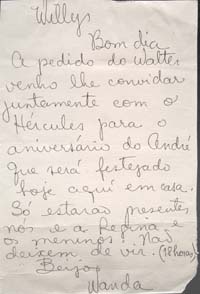 Willys
Bom dia
A pedido do Walter
venho lhe convidar
juntamente com o
Hércules para o
aniversário do André
que será festejado
hoje aqui em casa.
Só estarão presentes
nós e a Regina e
os meninos! Não
deixem de vir. (18 horas)
Beijos
Wanda